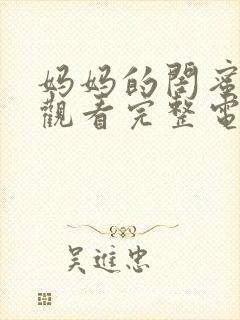 妈妈的閤蜜
觀看完整電
吴進忠